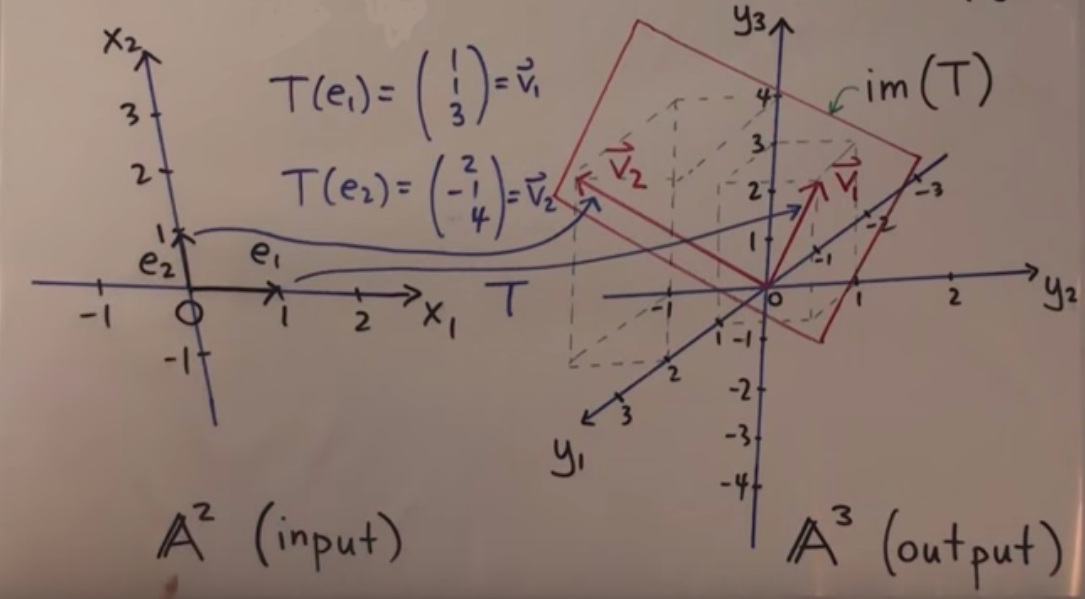 x₂
3
2
1
e₂
e₁
-1
O
1
2
x₁
-1
T(e₁) = (1 1 3) = v⃗₁
T(e₂) = (2 -1 4) = v⃗₂
T
y₃
im(T)
4
3
2
1
v⃗₂
v⃗₁
-3
-2
-1
-1
0
1
2
y₂
1
2
3
y₁
-1
-2
-3
-4
𝔸² (input)
𝔸³ (output)